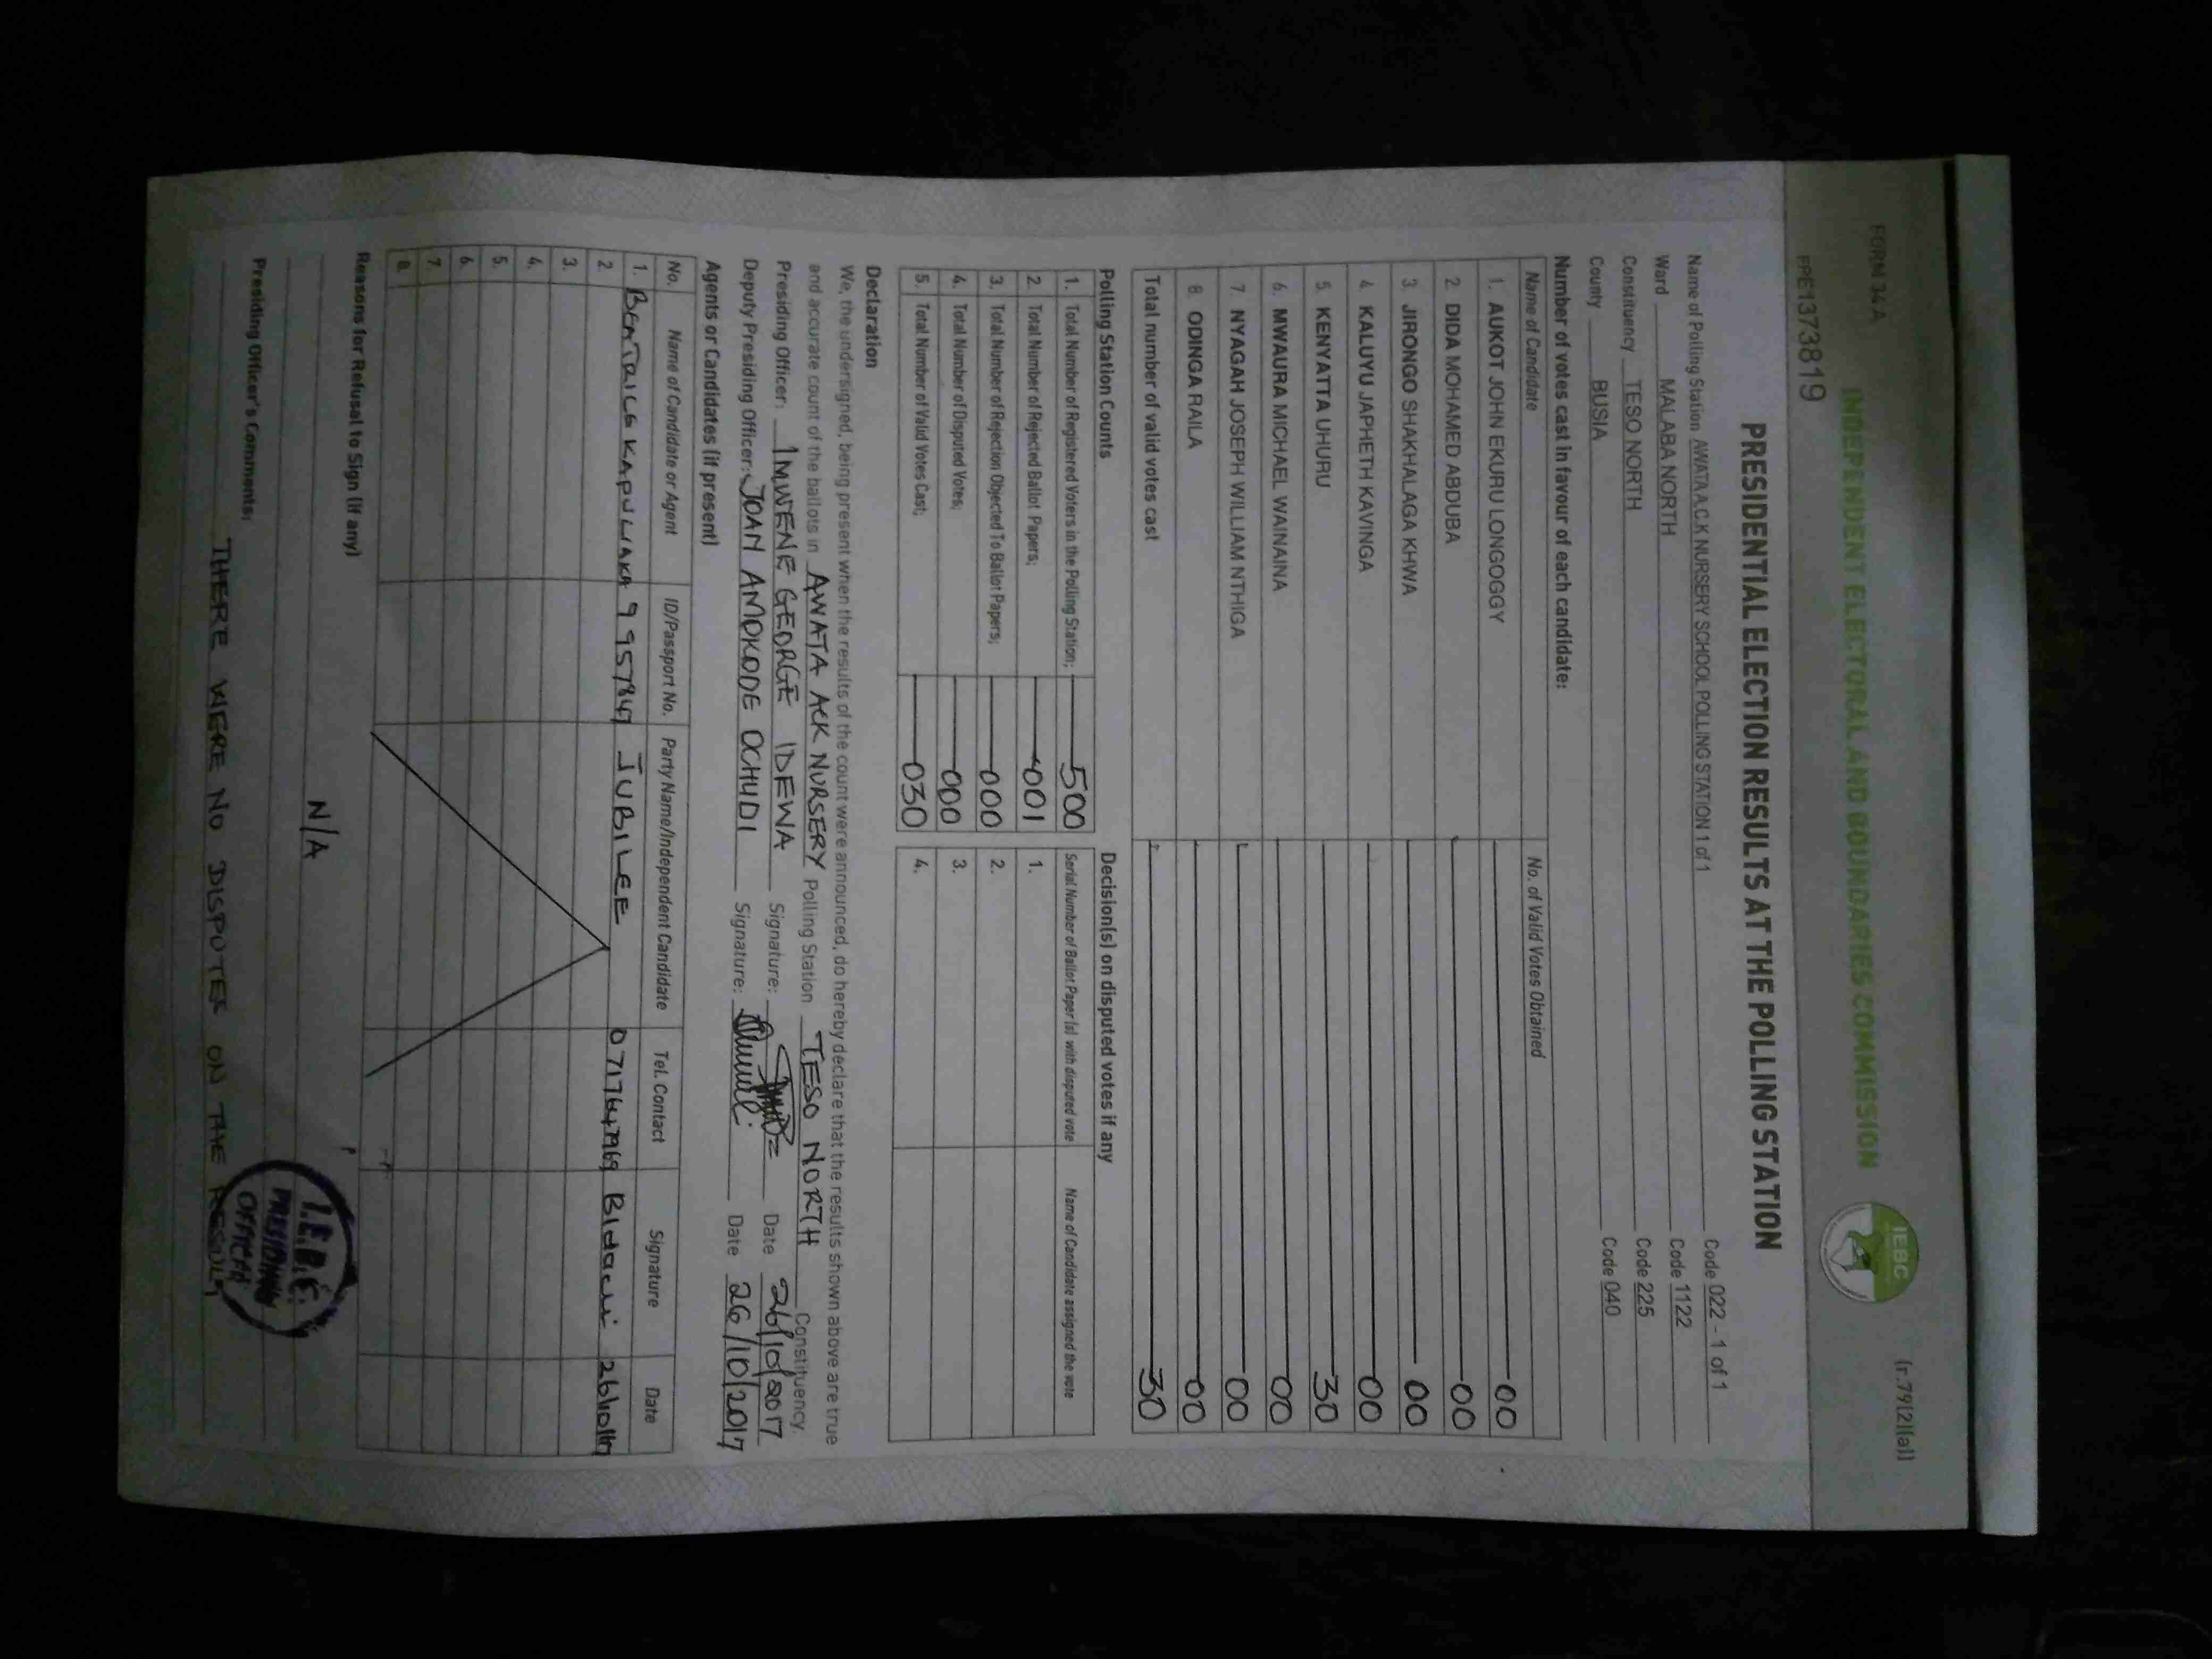 FORM 34A
(r.79(2)(a))
INDEPENDENT ELECTORAL AND BOUNDARIES COMMISSION
IEBC
PPE1373819
PRESIDENTIAL ELECTION RESULTS AT THE POLLING STATION
Name of Polling Station AWATA A.C.K NURSERY SCHOOL POLLING STATION 1 of 1 Code 022 - 1 of 1
Ward MALABA NORTH Code 1122
Constituency TESO NORTH Code 225
County BUSIA Code 040
Number of votes cast in favour of each candidate:
Name of Candidate No. of Valid Votes Obtained
1. AUKOT JOHN EKURU LONGOGGY 00
2. DIDA MOHAMED ABDUBA 00
3. JIRONGO SHAKHALAGA KHWA 00
4. KALUYU JAPHETH KAVINGA 00
5. KENYATTA UHURU 30
6. MWAURA MICHAEL WAINAINA 00
7. NYAGAH JOSEPH WILLIAM NTHIGA 00
8. ODINGA RAILA 00
Total number of valid votes cast 30
Polling Station Counts Decision(s) on disputed votes if any
1. Total Number of Registered Voters in the Polling Station; 500 Serial Number of Ballot Paper(s) with disputed vote Name of Candidate assigned the vote
2. Total Number of Rejected Ballot Papers; 001 1.
3. Total Number of Rejection Objected To Ballot Papers; 000 2.
4. Total Number of Disputed Votes; 000 3.
5. Total Number of Valid Votes Cast; 030 4.
Declaration
We, the undersigned, being present when the results of the count were announced, do hereby declare that the results shown above are true
and accurate count of the ballots in AWATA ACK NURSERY Polling Station TESO NORTH Constituency.
Presiding Officer: IMWENE GEORGE IDEWA Signature: Date 26/10/2017
Deputy Presiding Officer: JOAN AMOKODE OCHUDI Signature: Date 26/10/2017
Agents or Candidates (if present)
No. Name of Candidate or Agent ID/Passport No. Party Name/Independent Candidate Tel. Contact Signature Date
1. JUBILEE 26/10/17
2.
3.
4.
5.
6.
7.
8.
Reasons for Refusal to Sign (if any)
N/A
Presiding Officer's Comments:
THERE WERE NO DISPUTES ON THE RESULT
I.E.B.C.
PRESIDING
OFFICER